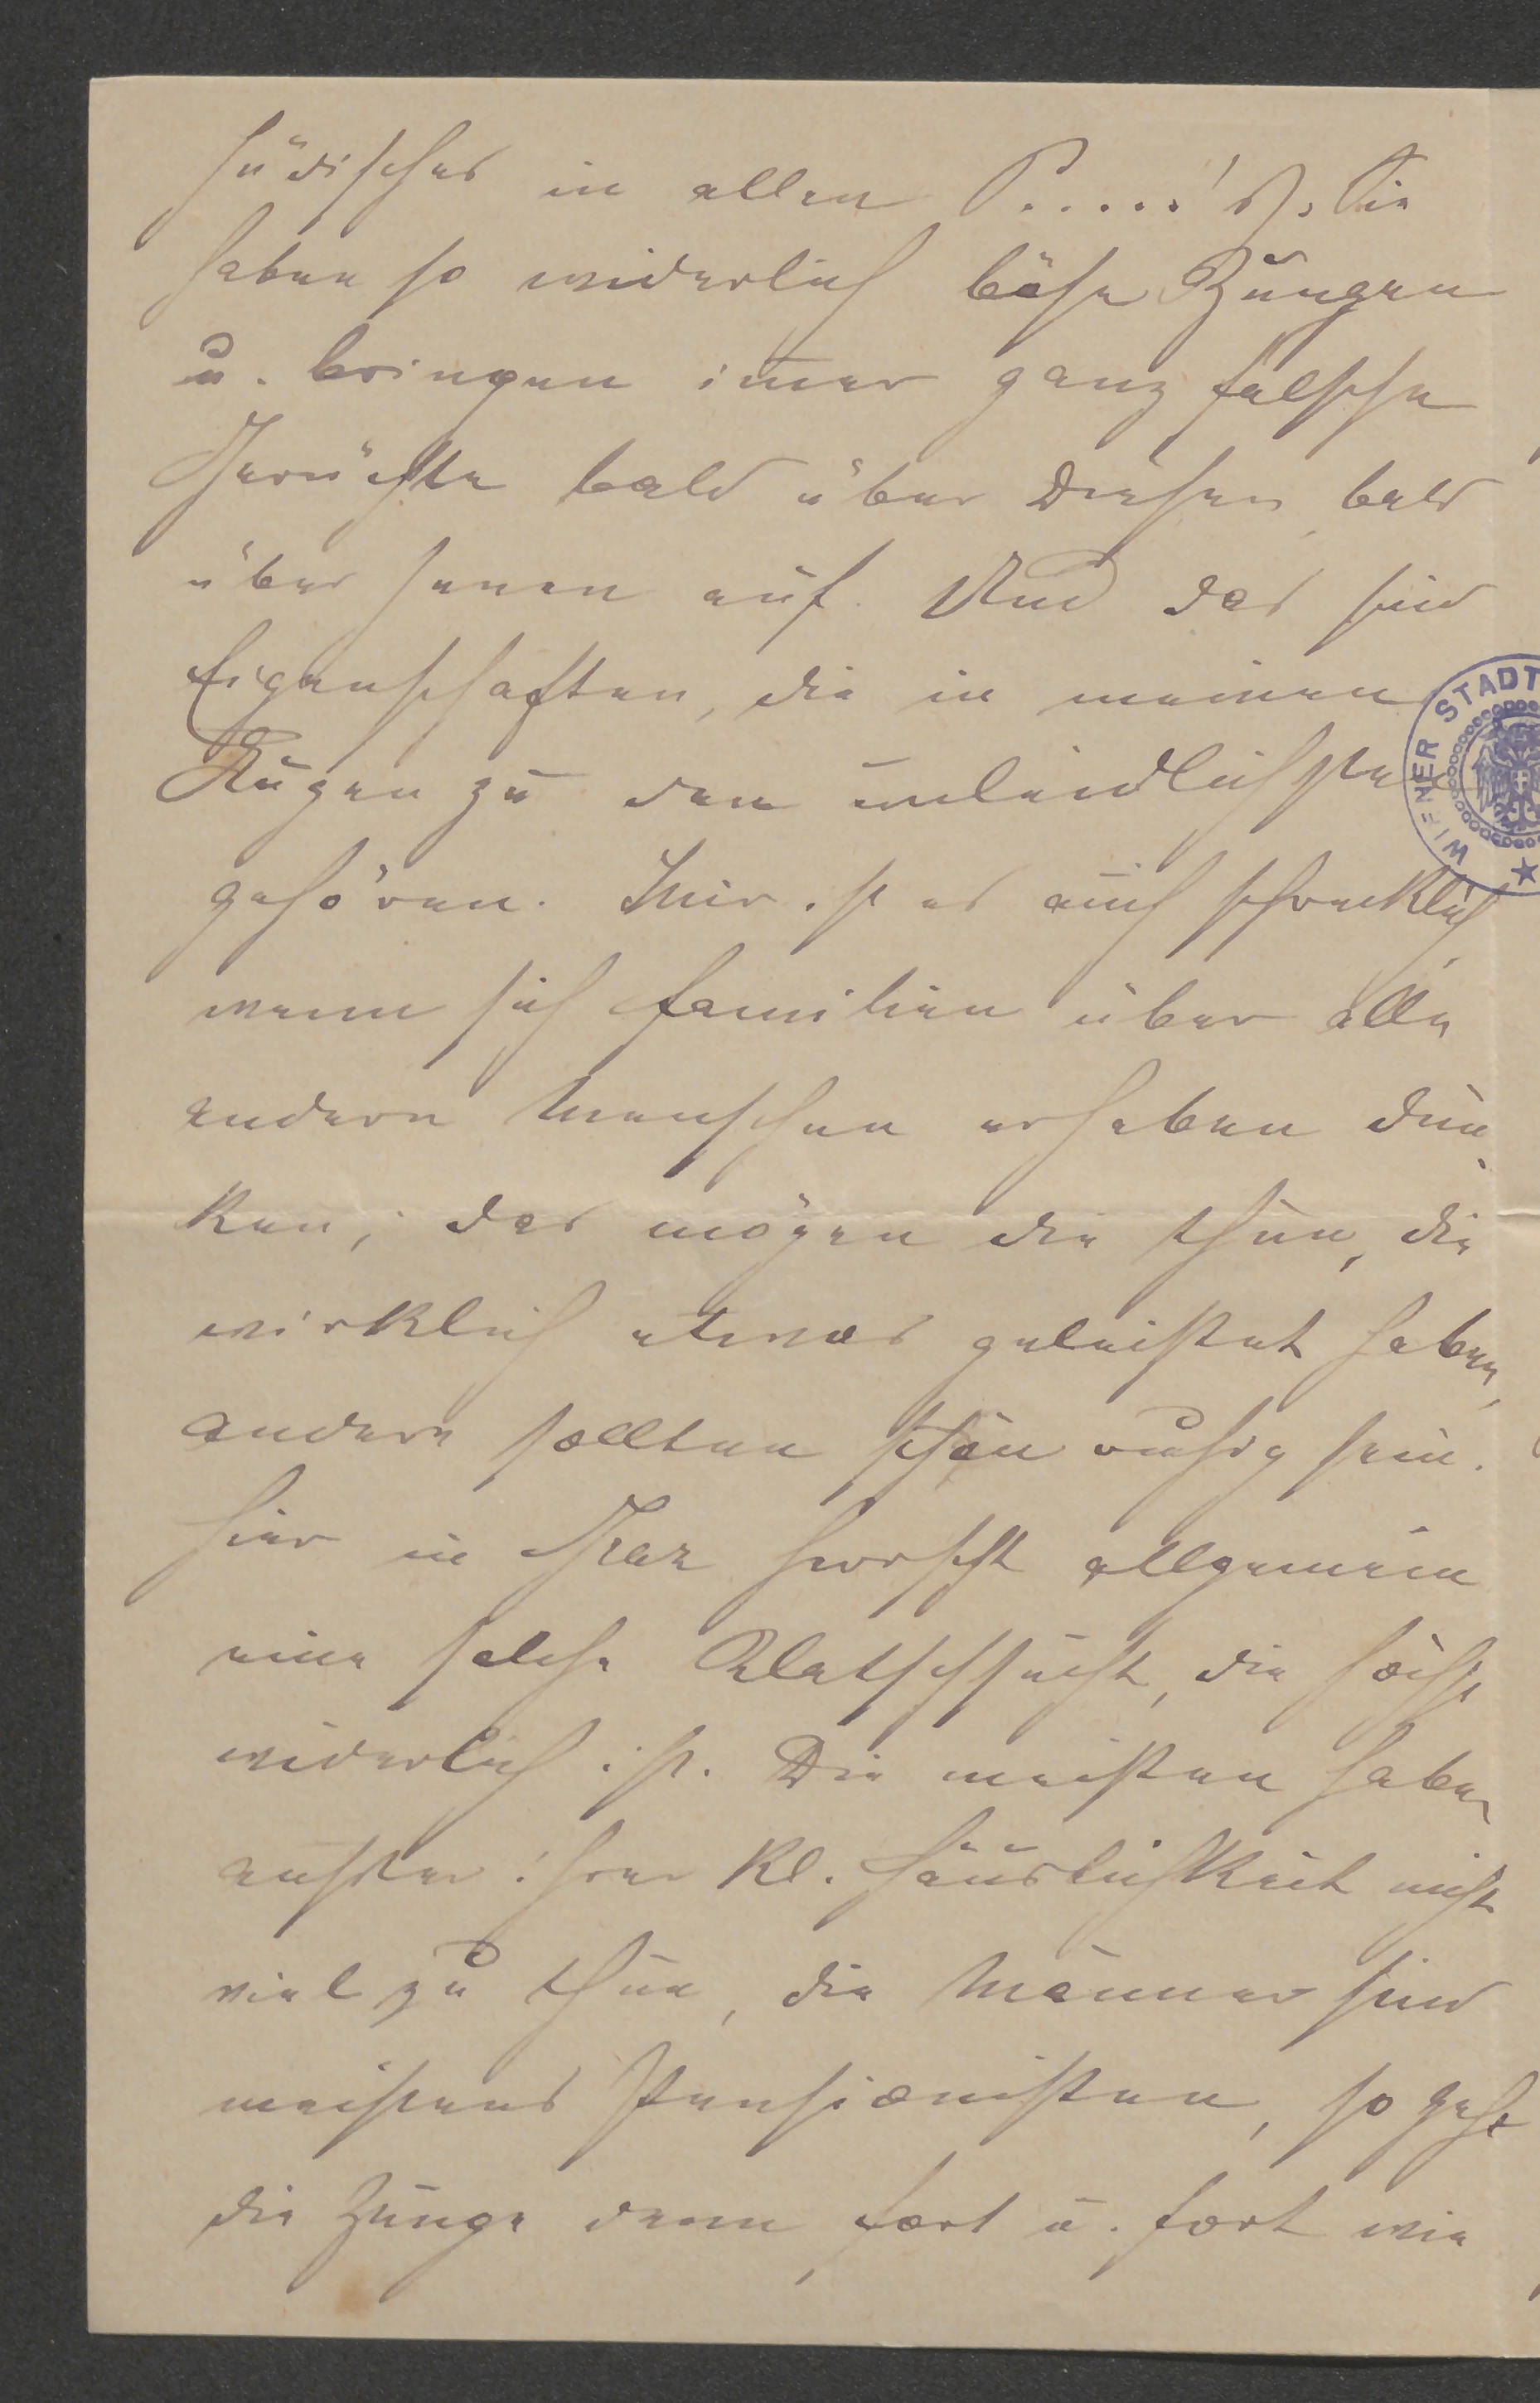 jüdisches in allen P.....'s. Sie
haben so widerlich böse Zungen
u. bringen im̄er ganz falsche
Gerüchte bald über Diesen bald
über Jenen auf. Und das sind
Eigenschaften, die in meinen
Augen zu den unleidlichsten
gehören. Mir ist es auch schrecklich,
wenn sich Familien über alle
andern Menschen erhaben dün
ken; das mögen die thun, die
wirklich etwas geleistet haben,
andere sollten schön ruhig sein.
Hier in Graz herrscht allgemein
eine solche Klatschsucht, die höchst
widerlich ist. Die meisten haben
außer ihrer kl. Häuslichkeit nicht
viel zu thun, die Männer sind
meistens Pensionisten, so geht
die Zunge denn fort u. fort wie
WIENER STADT